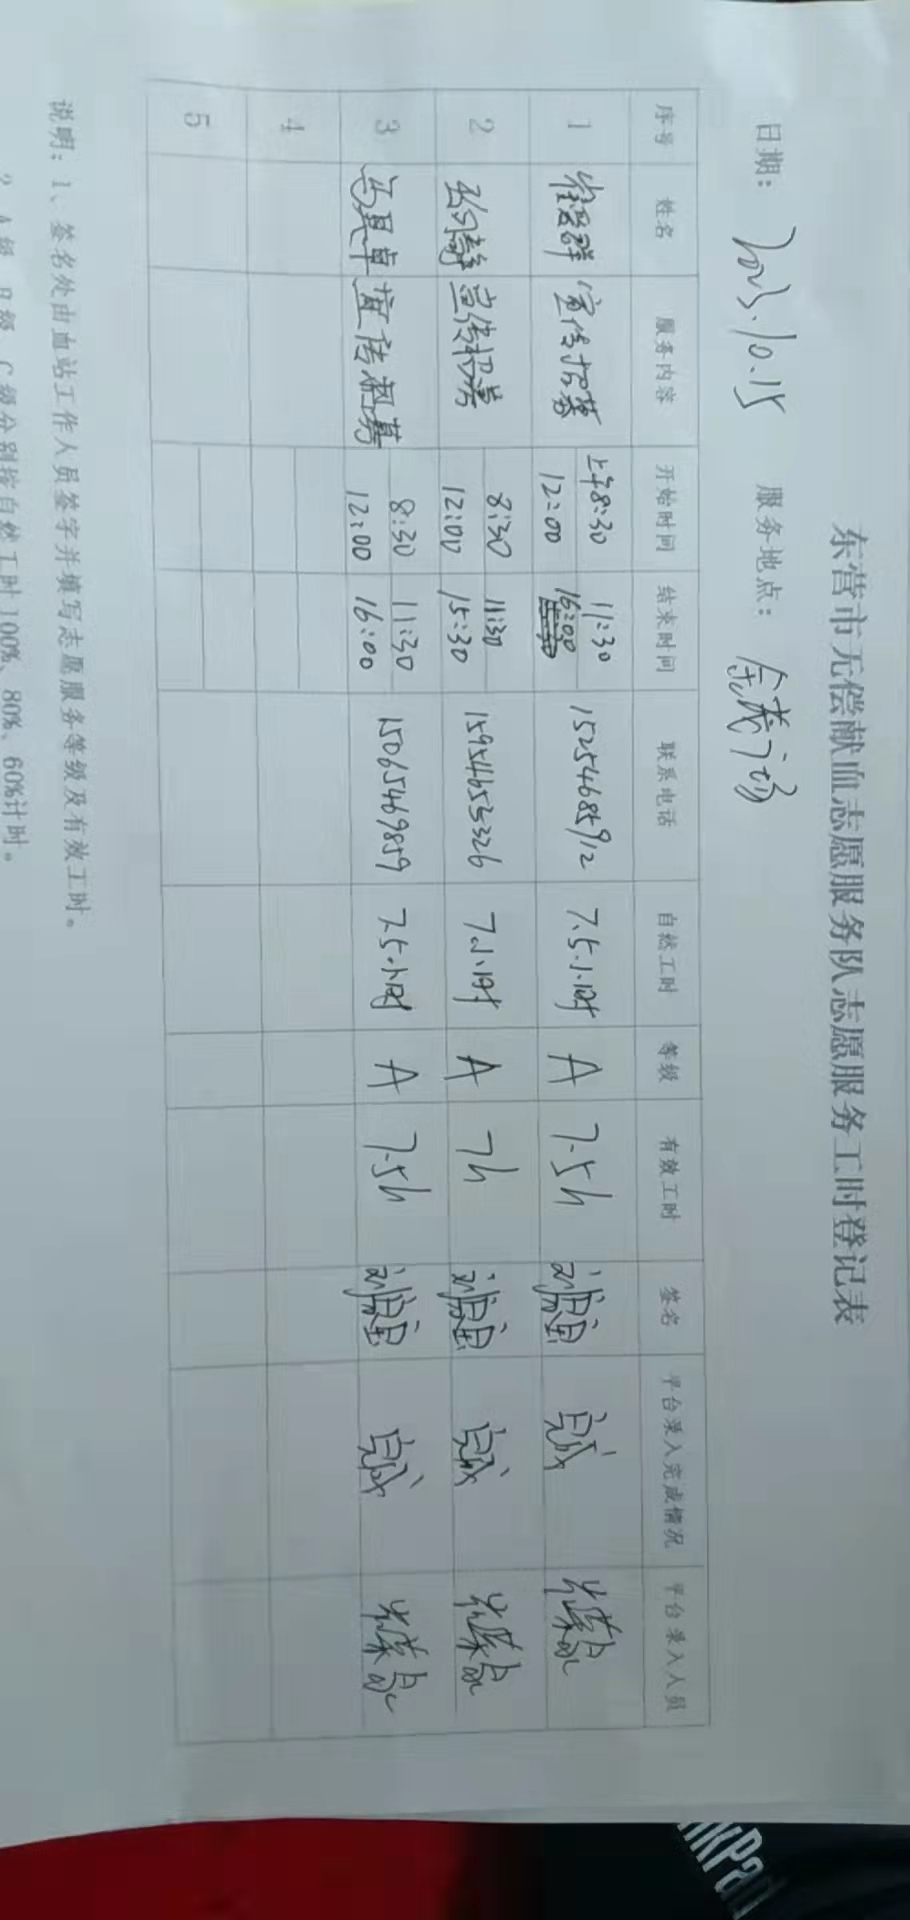 东营市无偿献血志愿服务队志愿服务工时登记表
日期： 2023.10.15 服务地点： 金茂广场
序号 姓名 服务内容 开始时间 结束时间 联系电话 自然工时 等级 有效工时 签名 平台录入完成情况 平台录入人员
1 崔爱群 宣传招募 上午8:30 11:30 15254685912 7.5小时 A 7.5h 完成
12:00 16:00
2 静 宣传招募 8:30 11:30 15954653326 7小时 A 7h 完成
12:00 15:30
3 宣传招募 8:30 11:30 15065469859 7.5小时 A 7.5h 完成
12:00 16:00
4
5
说明：1、签名处由血站工作人员签字并填写志愿服务等级及有效工时。
2 A级 B级 C级分别按自然工时100%、80%、60%计时。